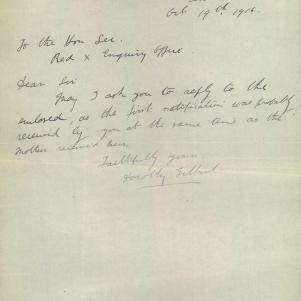 Oct 19th 1916.
To the Hon Sec.
Red X Enquiry Office.
Dear Sir
May I ask you to reply to the
enclosed, as the first notification was probably
received by you at the same time as the
Mother received hers.
Faithfully yours
Dorothy